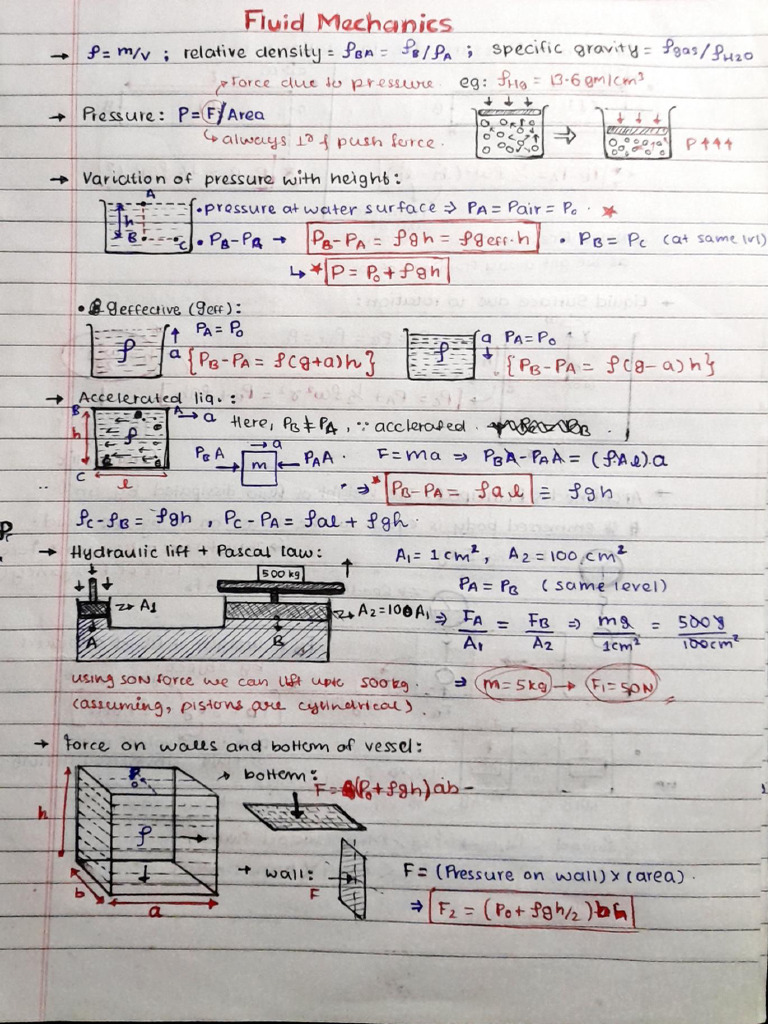 Fluid Mechanics
→ ρ = m/v ; relative density = ρBA = ρB/ρA ; specific gravity = ρgas/ρH2O
Force due to pressure. eg: ρHg = 13.6 gm/cm³
→ Pressure: P = F/Area
↳ always 1r & push force.
⇒ P↑↑↑
→ Variation of pressure with height:
A
h
B C
• pressure at water surface ⇒ PA = Pair = P0.
• PB-PA → PB-PA = ρgh = ρgeff.h • PB = PC (at same lvl)
↳ * P = P0 + ρgh
• geffective (geff):
ρ a PA = P0
{PB-PA = ρ(g+a)h}
ρ a PA = P0
{PB-PA = ρ(g-a)h}
→ Accelerated liq.:
B A → a
h ρ
C l
Here, PB ≠ PA, ∵ acclerated.
→ a
PBA → m ← PAA F = ma ⇒ PBA - PAA = (ρAl).a
⇒ * PB-PA = ρal = ρgh
ρC-ρB = ρgh, PC-PA = ρal + ρgh.
→ Hydraulic lift + Pascal law: A1 = 1cm², A2 = 100cm²
500kg
PA = PB (same level)
→ A1 → A2 = 100A1
A B
⇒ FA/A1 = FB/A2 ⇒ mg/1cm² = 500g/100cm²
using 50N force we can lift upto 500kg. ⇒ m = 5kg → F1 = 50N
(assuming, pistons are cylindrical).
→ Force on walls and bottom of vessel:
→ bottom:
F = (P0 + ρgh)ab
h ρ
b a
→ wall: F
F = (Pressure on wall) × (area).
⇒ F2 = (P0 + ρgh/2)bh